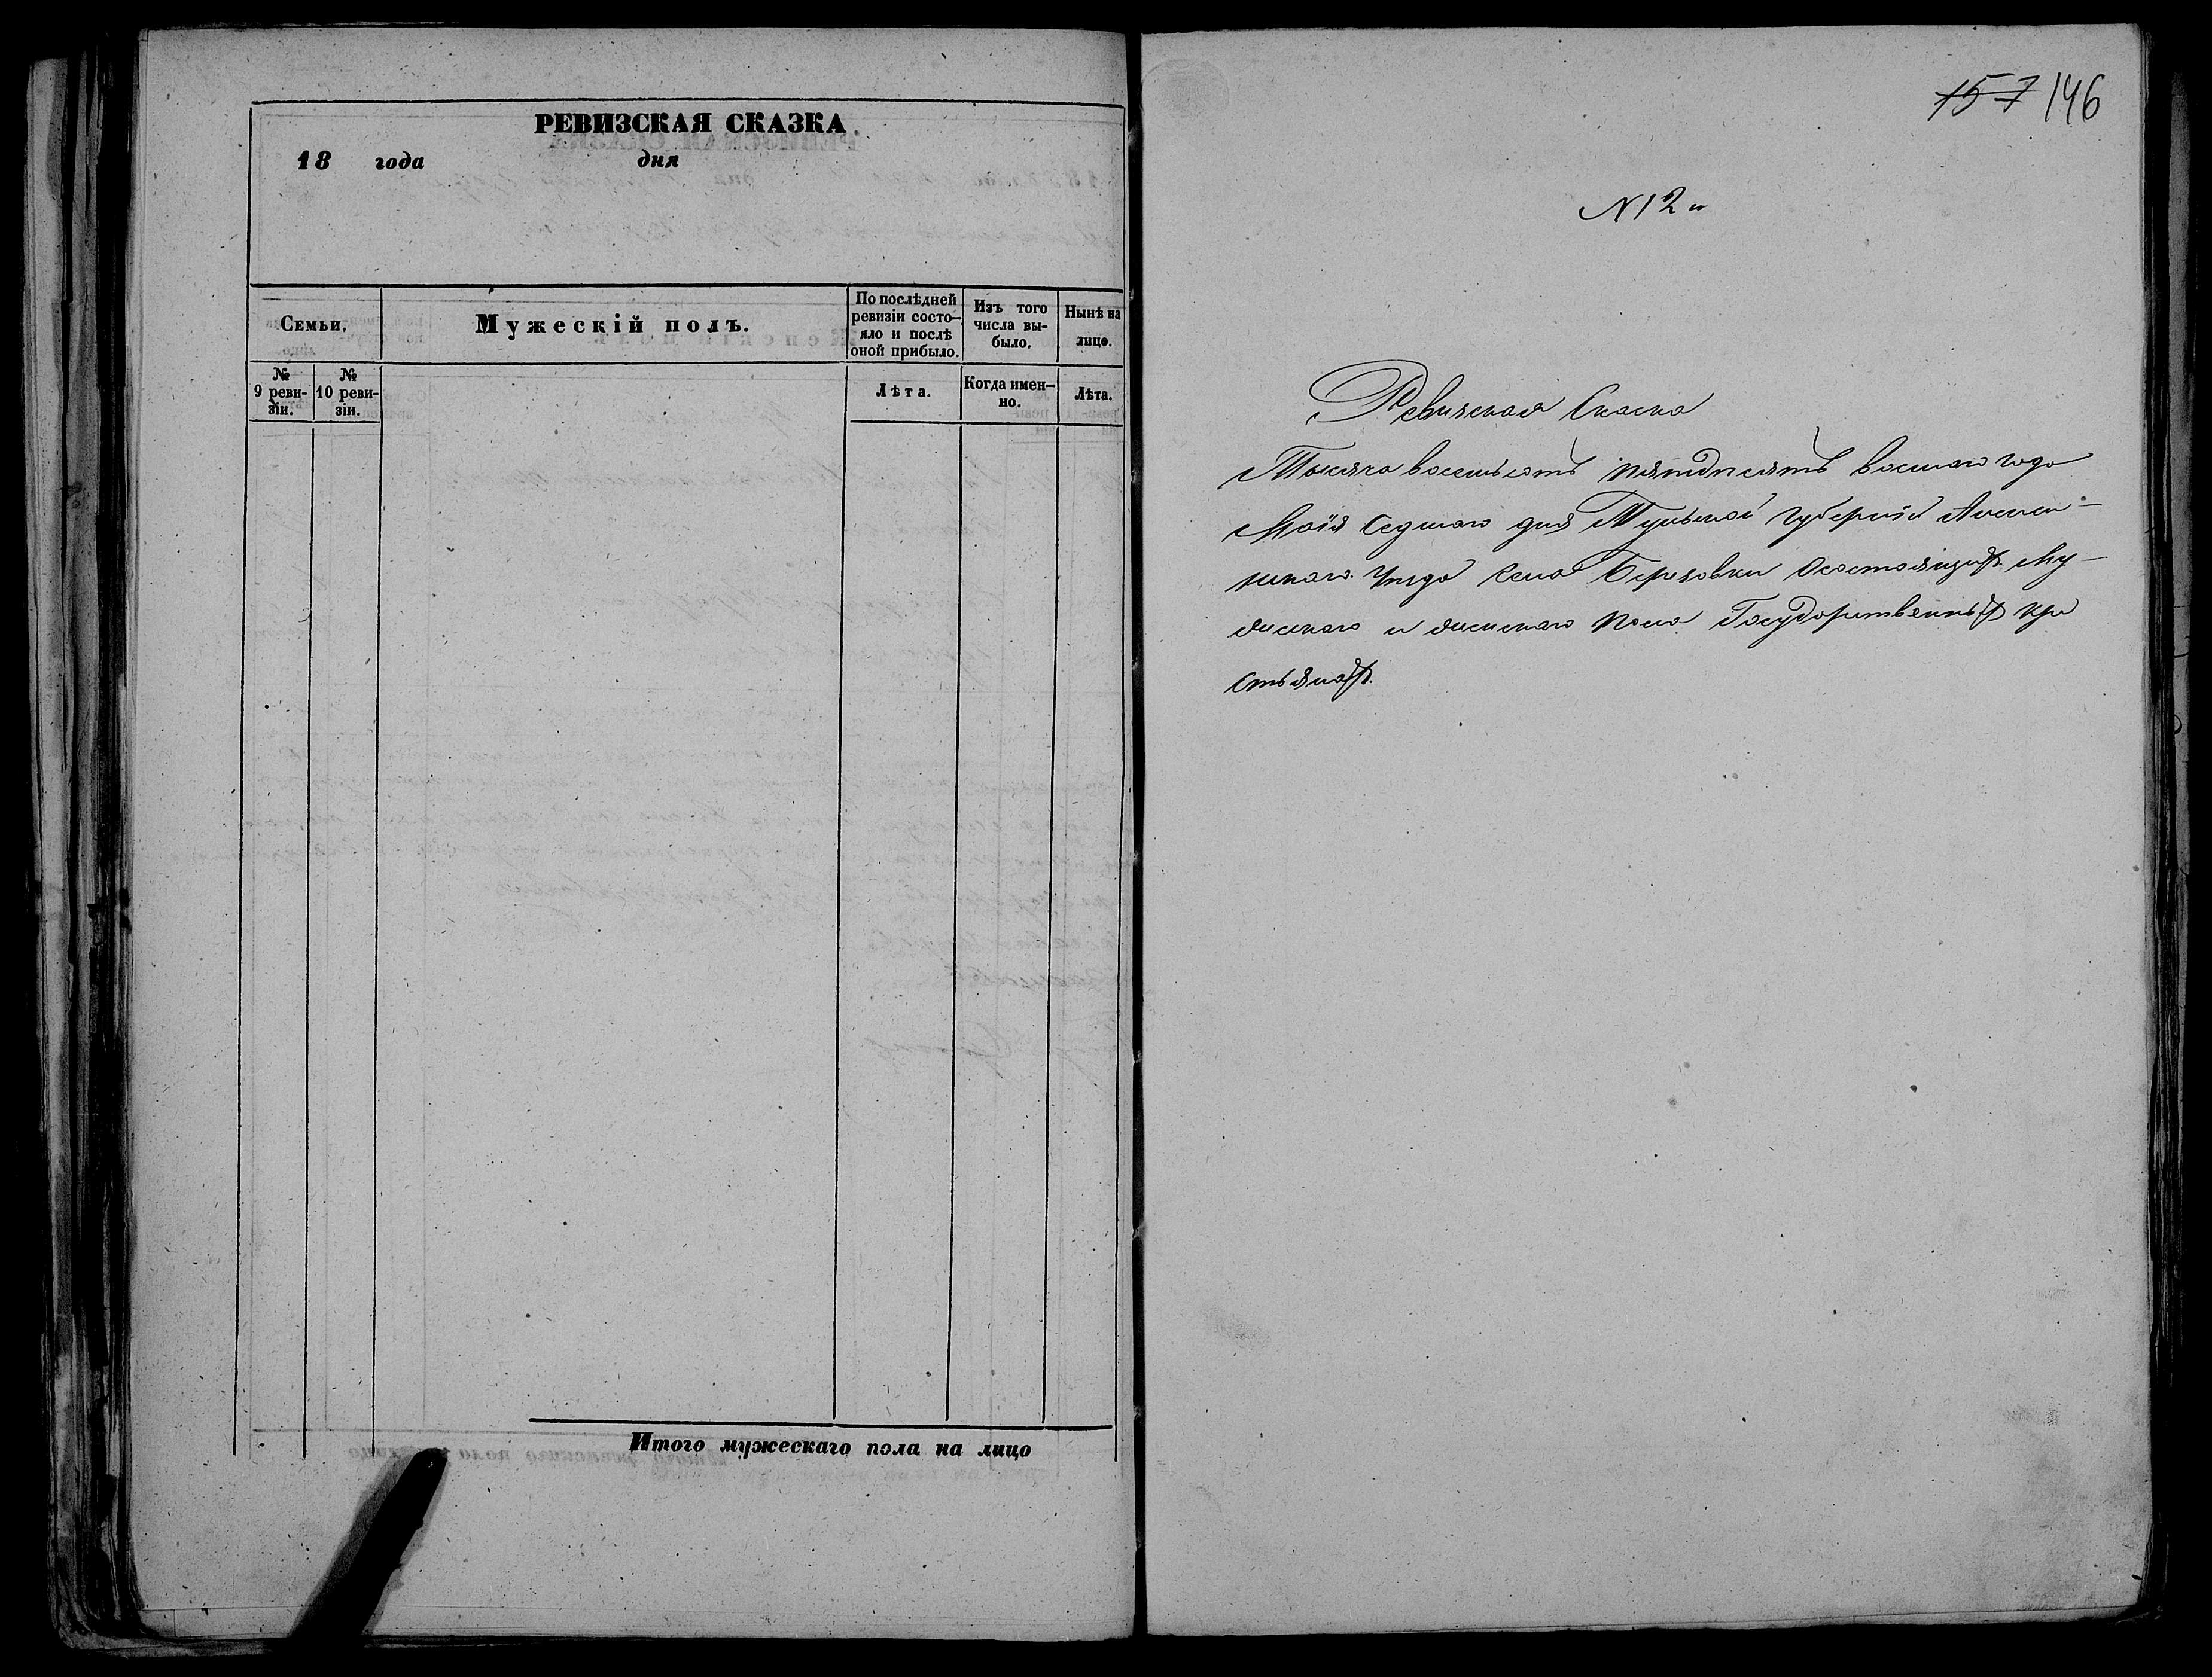 РЕВИЗСКАЯ СКАЗКА
18 года дня
Семьи.
Мужескій полъ.
По послѣдней ревизіи состо-
яло и послѣ оной прибыло.
Изъ того числа вы-
было.
Нынѣ на лицо.
№ 9 реви-
зіи.
№ 10 реви-
зіи.
Лѣта.
Когда имен-
но.
Лѣта.
Итого мужескаго пола на лицо
157 146
N 12й
Ревизская Скаска
Тысяча восемьсотъ пятдѣсятъ восмаго года
Маія Седмаго дня Тульской Губерніи Алекси-
нскаго Уѣзда Села Березовки Осостоящихъ Му-
жескаго и женскаго пола Государственныхъ Кре
стьянахъ.